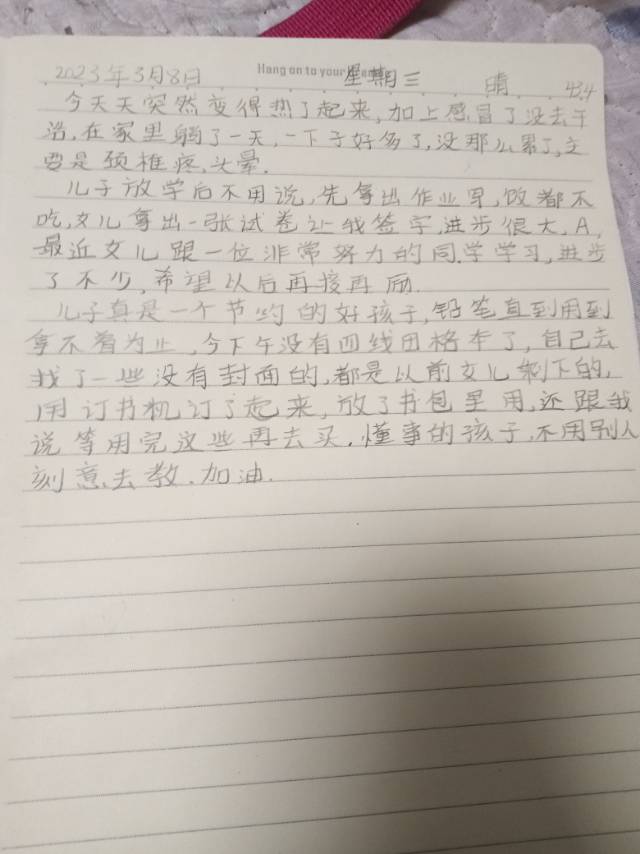 Hang on to your
2023年3月8日 星期三 晴 434
今天天突然变得热了起来,加上感冒了没去干
活,在家里躺了一天,一下子好多了,没那么累了,主
要是颈椎疼,头晕.
儿子放学后不用说,先拿出作业写,饭都不
吃,女儿拿出一张试卷让我签字,进步很大,A,
最近女儿跟一位非常努力的同学学习,进步
了不少,希望以后再接再励.
儿子真是一个节约的好孩子,铅笔直到用到
拿不着为止,今下午没有四线田格本了,自己去
找了一些没有封面的,都是以前女儿剩下的,
用订书机订了起来,放了书包里用,还跟我
说等用完这些再去买,懂事的孩子,不用别人
刻意去教.加油.